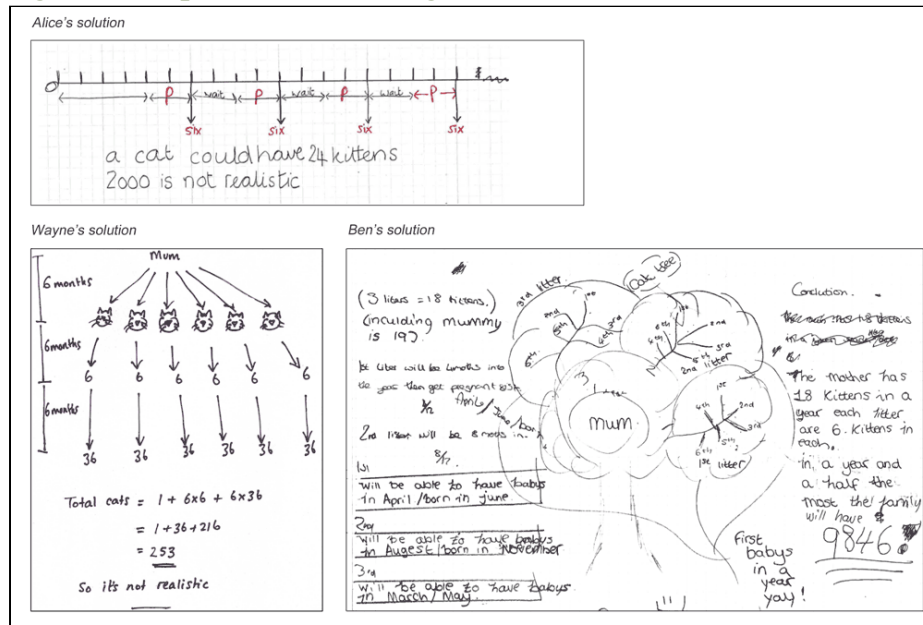 Alice's solution
0
P wait P wait P wait P
six six six six
a cat could have 24 kittens
2000 is not realistic
Wayne's solution
mum
6 months
6 months
6 6 6 6 6 6
6 months
36 36 36 36 36 36
Total cats = 1 + 6x6 + 6x36
= 1+36+216
= 253
So it's not realistic
Ben's solution
(3 liters = 18 kittens.)
(inculding mummy
is 19?.
1st liter will be 4 months into
the year then get pregnant
April / June / born
2nd litter will be 8 months in.
8/12
1st
will be able to have babys
in April / born in June
2nd
will be able to have babys
in Augest / born in November
3rd
will be able to have babys
in March / May.
Oak tree
3rd litter
2nd
1st
5th
6th
3rd
2nd
3rd
5th
2nd litter
mum
1st
6th
2nd
3rd
5th
6th
1st litter
First
babys
in a
year
yay!
Conclution.
The mother has
18 kittens in a
year each litter
are 6. kittens in
each.
in a year and
a half the
most the family
will have
9846.